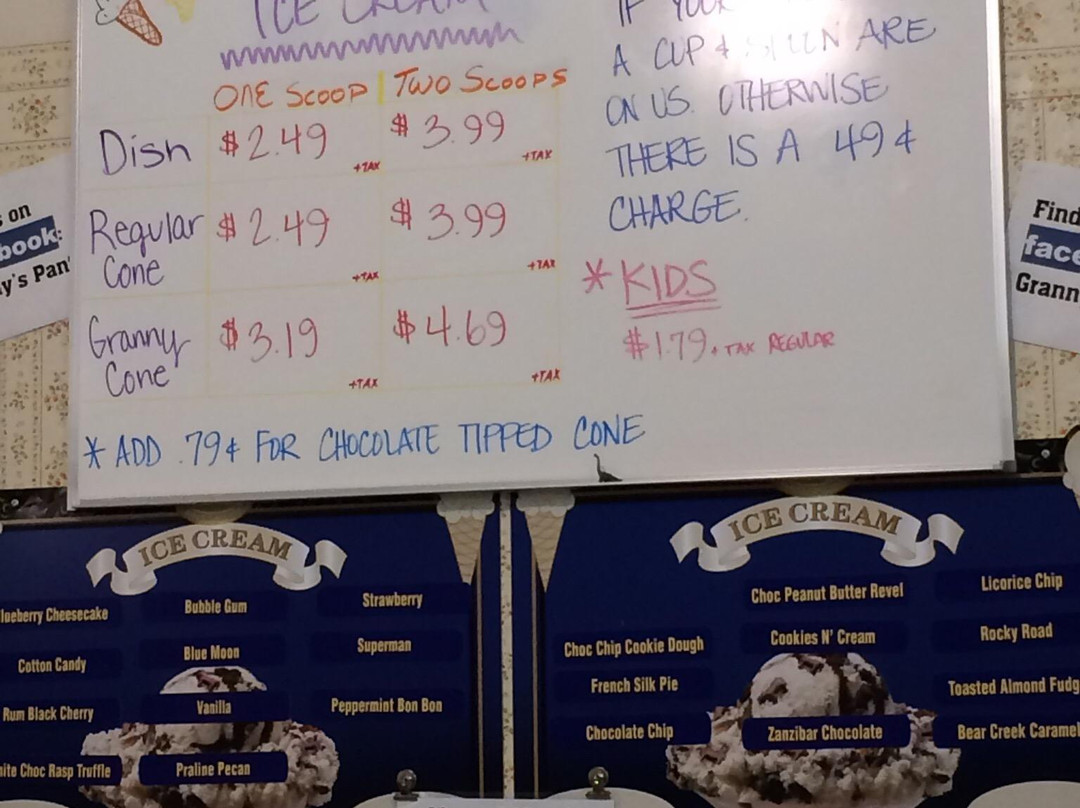 ICE CREAM
ONE SCOOP TWO SCOOPS
Dish $2.49 +TAX $3.99 +TAX
Regular Cone $2.49 +TAX $3.99 +TAX
Granny Cone $3.19 +TAX $4.69 +TAX
* ADD .79¢ FOR CHOCOLATE TIPPED CONE
IF YOUR
A CUP & ARE
ON US. OTHERWISE
THERE IS A 49¢
CHARGE.
* KIDS
$1.79 + TAX REGULAR
on
book:
y's Pan
Find
face
Grann
ICE CREAM
lueberry Cheesecake
Cotton Candy
Rum Black Cherry
ite Choc Rasp Truffle
Bubble Gum
Blue Moon
Vanilla
Praline Pecan
Strawberry
Superman
Peppermint Bon Bon
ICE CREAM
Choc Chip Cookie Dough
French Silk Pie
Chocolate Chip
Choc Peanut Butter Revel
Cookies N' Cream
Zanzibar Chocolate
Licorice Chip
Rocky Road
Toasted Almond Fudg
Bear Creek Caramel